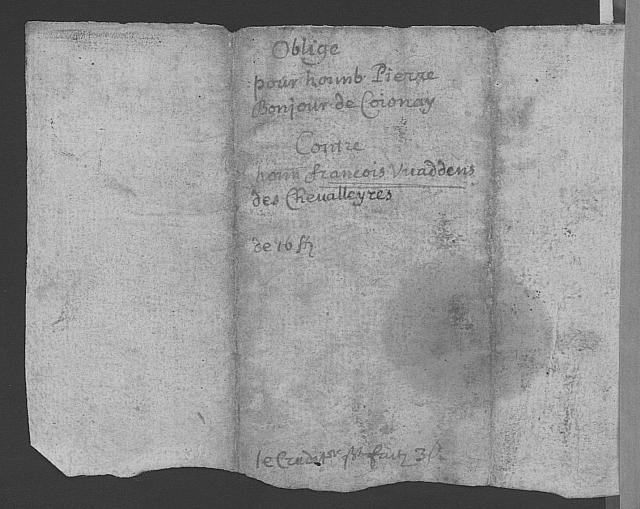 Oblige
pour honnb Pierre
Bonjour de Coionay
Contre
honn francois Vuaddens
des Cheualleyres
de 10
le Credit